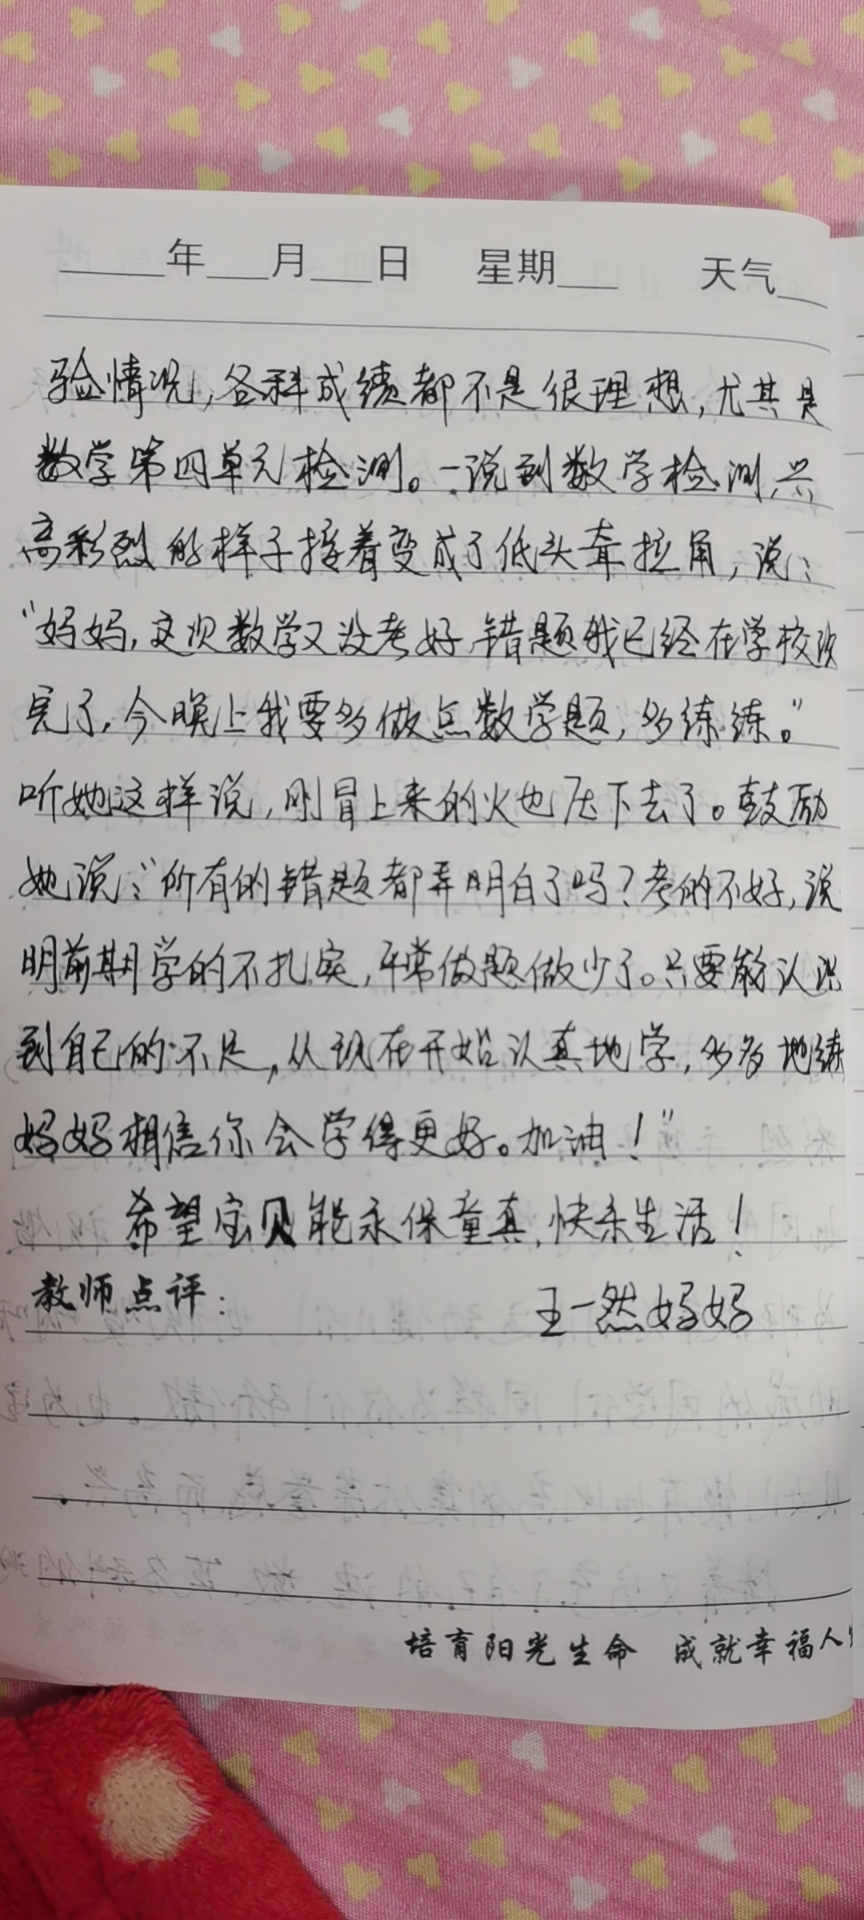 ____年___月___日 星期___ 天气__
验情况,各科成绩都不是很理想,尤其是
数学第四单元检测。一说到数学检测,兴
高彩烈的样子接着变成了低头耷拉角,说:
“妈妈,这次数学又没考好,错题我已经在学校改
完了,今晚上我要多做点数学题,多练练。”
听她这样说,刚冒上来的火也压下去了。鼓励
她说:“所有的错题都弄明白了吗?考的不好,说
明前期学的不扎实,平常做题做少了。只要能认识
到自己的不足,从现在开始认真地学,多多地练
妈妈相信你会学得更好。加油!”
希望宝贝能永保童真,快乐生活!
教师点评: 王一然妈妈
培育阳光生命 成就幸福人